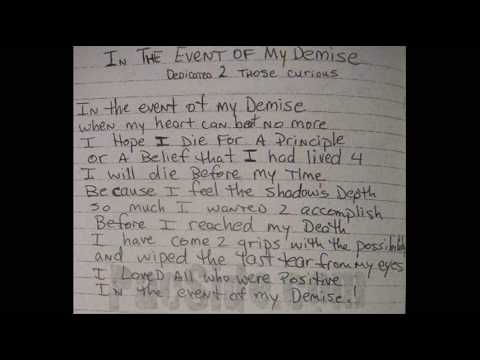 In The Event of My Demise
Dedicated 2 Those Curious
In the event of my Demise
when my heart can beat no more
I Hope I Die For A Principle
or A Belief that I had lived 4
I will die Before my Time
Because I feel the shadow's Depth
so much I wanted 2 accomplish
Before I reached my Death
I have come 2 grips with the possibility
and wiped the last tear from my eyes
I Loved All who were Positive
In the event of my Demise!